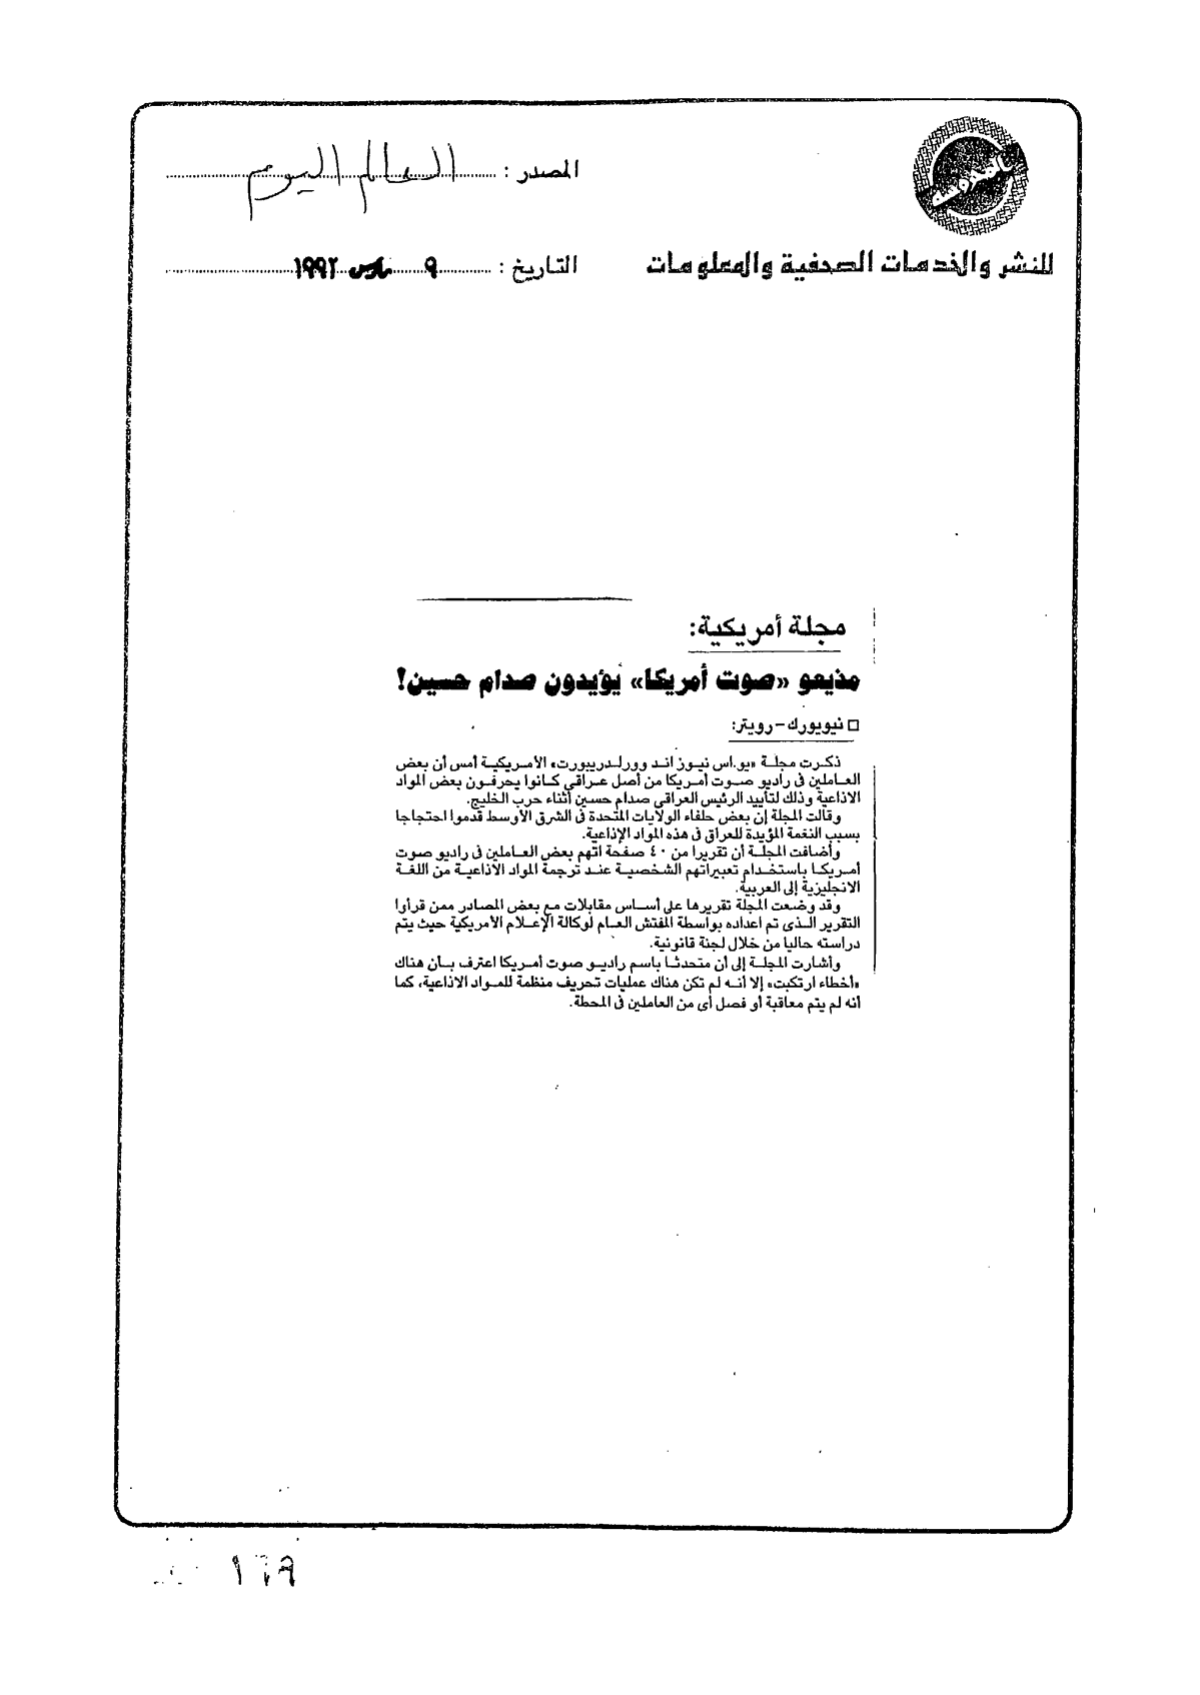 المصدر : العالم اليوم
للنشر والخدمات الصحفية والمعلومات
التاريخ : ٩ مارس ١٩٩٢
مجلة أمريكية:
مذيعو «صوت أمريكا» يؤيدون صدام حسين!
□ نيويورك–رويتر:
ذكرت مجلة «يو.اس نيوز اند وورلدريبورت» الأمريكية أمس أن بعض
العاملين فى راديو صوت أمريكا من أصل عراقى كانوا يحرفون بعض المواد
الاذاعية وذلك لتأييد الرئيس العراقى صدام حسين أثناء حرب الخليج.
وقالت المجلة إن بعض حلفاء الولايات المتحدة فى الشرق الأوسط قدموا احتجاجا
بسبب النغمة المؤيدة للعراق فى هذه المواد الإذاعية.
وأضافت المجلة أن تقريرا من ٤٠ صفحة اتهم بعض العاملين فى راديو صوت
أمريكا باستخدام تعبيراتهم الشخصية عند ترجمة المواد الاذاعية من اللغة
الانجليزية إلى العربية.
وقد وضعت المجلة تقريرها على أساس مقابلات مع بعض المصادر ممن قرأوا
التقرير الذى تم اعداده بواسطة المفتش العام لوكالة الإعلام الأمريكية حيث يتم
دراسته حاليا من خلال لجنة قانونية.
وأشارت المجلة إلى أن متحدثا باسم راديو صوت أمريكا اعترف بأن هناك
«أخطاء ارتكبت» إلا أنه لم تكن هناك عمليات تحريف منظمة للمواد الاذاعية، كما
أنه لم يتم معاقبة أو فصل أى من العاملين فى المحطة.